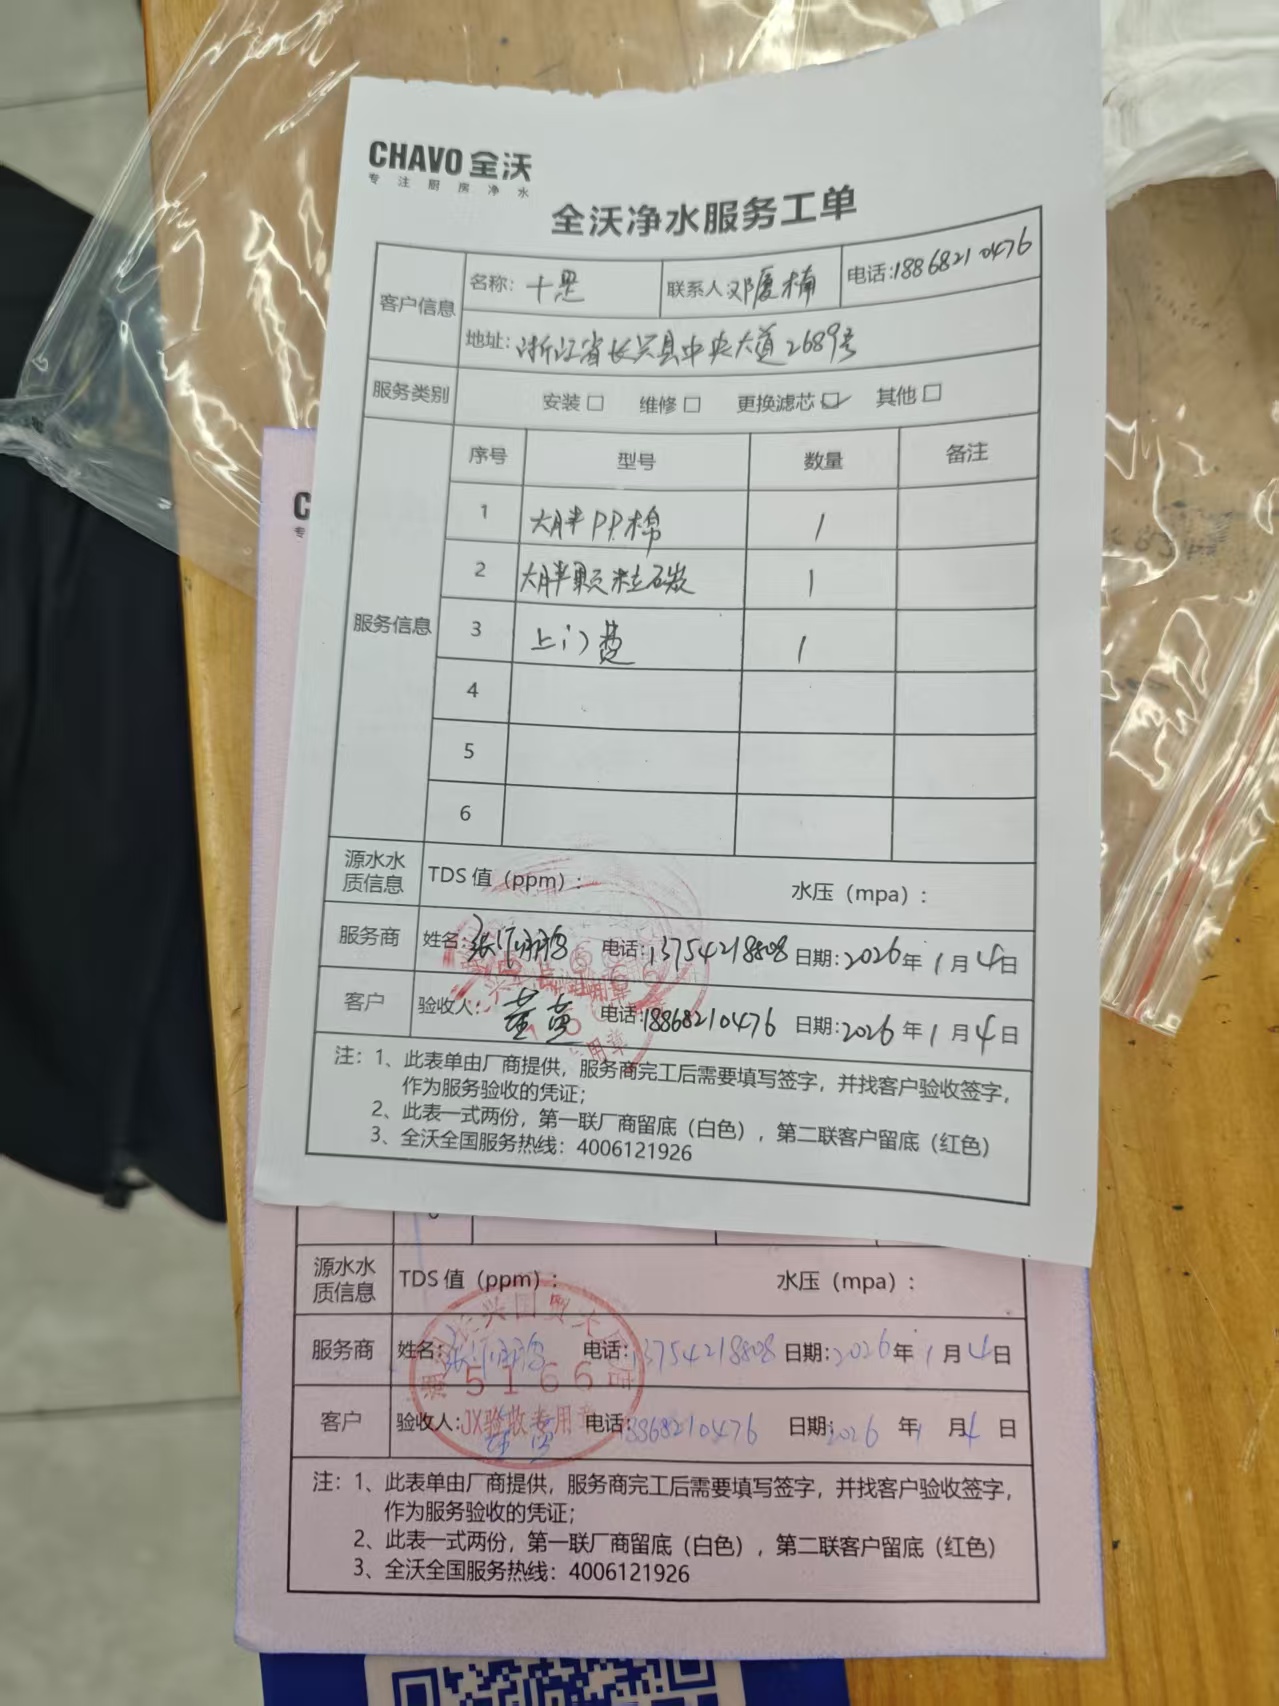 CHAVO 全沃
专注厨房净水
全沃净水服务工单
客户信息 名称: 十思 联系人 邓厦楠 电话:18868210476
地址: 浙江省长兴县中央大道2689号
服务类别 安装□ 维修□ 更换滤芯☑ 其他□
服务信息 序号 型号 数量 备注
1 大胖PP棉 1
2 大胖颗粒碳 1
3 上门费 1
4
5
6
源水水质信息 TDS 值（ppm）: 水压（mpa）:
服务商 姓名: 电话:13754218808 日期:2026年1月4日
客户 验收人: 董 电话:18868210476 日期:2026年1月4日
注: 1、此表单由厂商提供，服务商完工后需要填写签字，并找客户验收签字，
作为服务验收的凭证；
2、此表一式两份，第一联厂商留底（白色），第二联客户留底（红色）
3、全沃全国服务热线：4006121926
C
专
源水水质信息 TDS 值（ppm）: 水压（mpa）:
服务商 姓名: 电话:13754218808 日期:2026年1月4日
客户 验收人: 电话:18868210476 日期:2026年1月4日
兴国贸大
5166
JX验收专用章
注: 1、此表单由厂商提供，服务商完工后需要填写签字，并找客户验收签字，
作为服务验收的凭证；
2、此表一式两份，第一联厂商留底（白色），第二联客户留底（红色）
3、全沃全国服务热线：4006121926